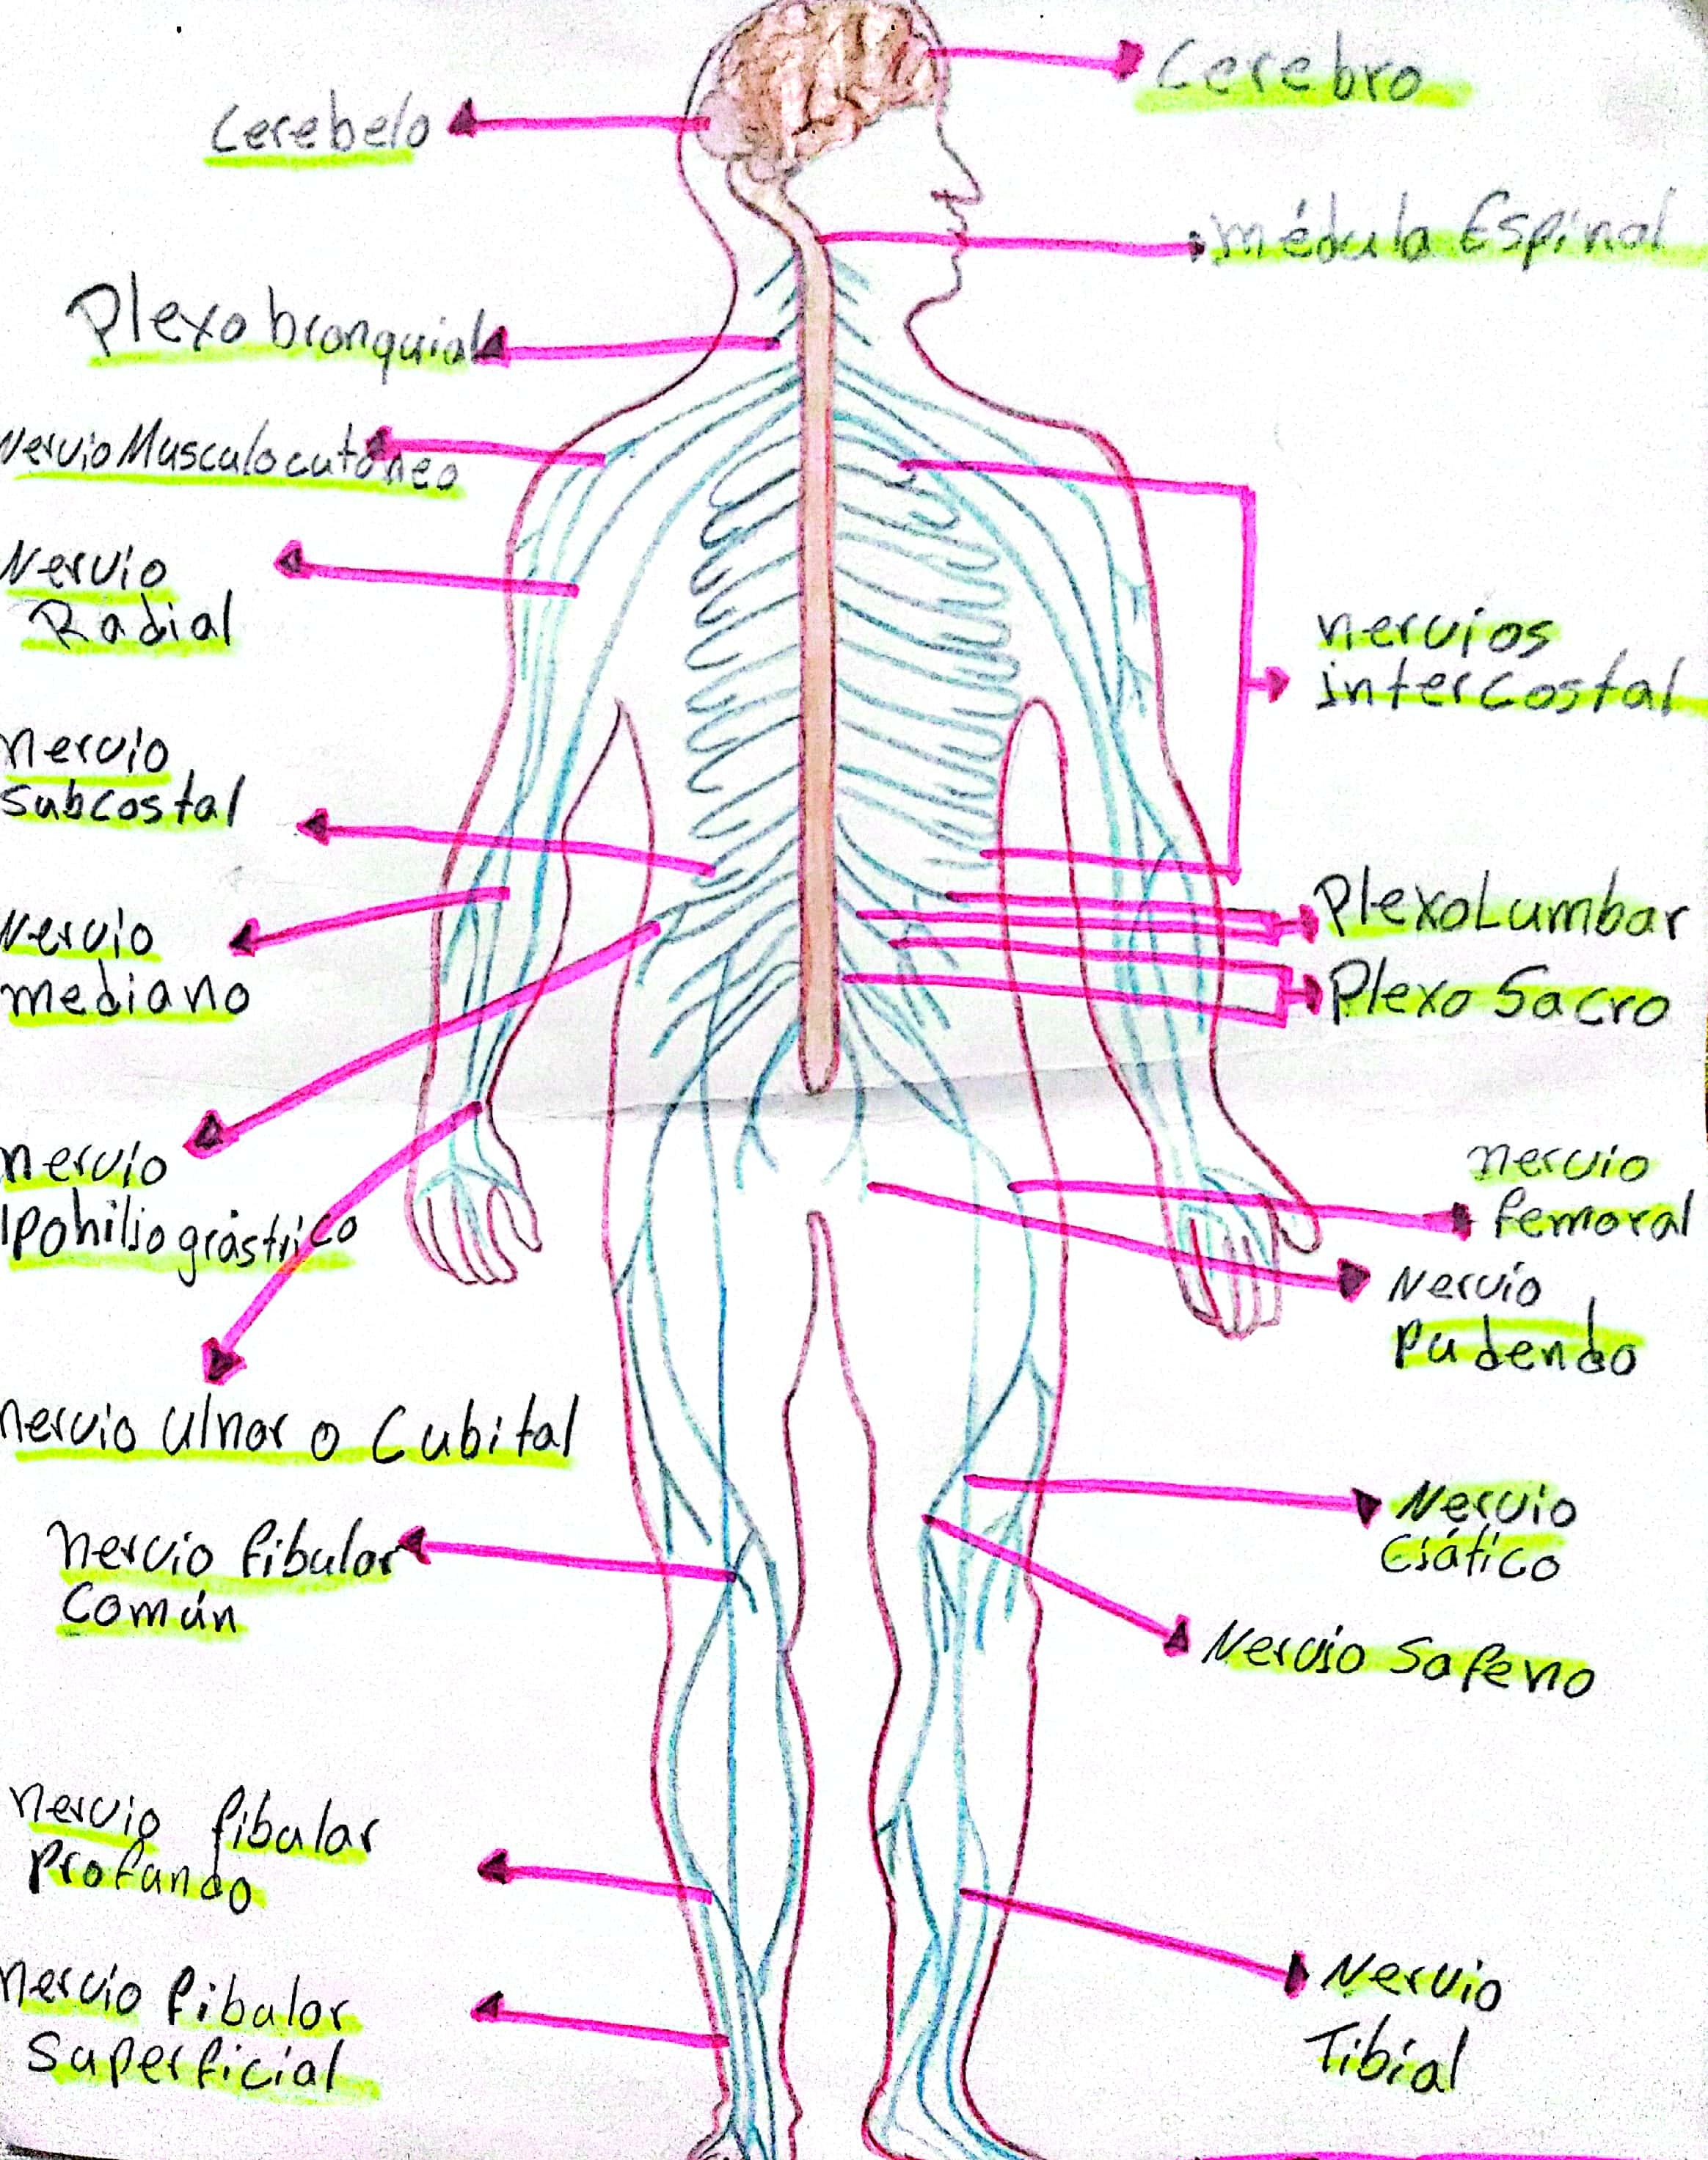 Cerebro
Cerebelo
médula Espinal
Plexo bronquial
Nervio Musculocutáneo
Nervio
Radial
nervios
intercostal
nervio
subcostal
Plexo Lumbar
Nervio
mediano
Plexo Sacro
nervio
Ipohiliográstrico
nervio
femoral
Nervio
Pudendo
nervio Ulnar o Cubital
Nervio
Ciático
nervio fibular
Común
Nervio Safeno
nervio fibular
Profundo
nervio fibular
Superficial
Nervio
Tibial